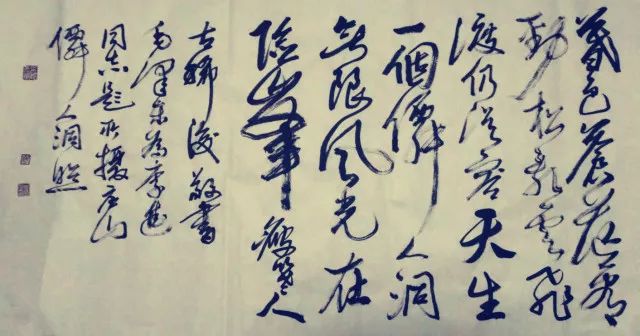 暮色蒼茫看
勁松亂雲飛
渡仍從容天生
一個僊人洞
無限風光在
險峯 人
古 敬書
毛澤東為李進
同志題所攝庐山
僊人洞照